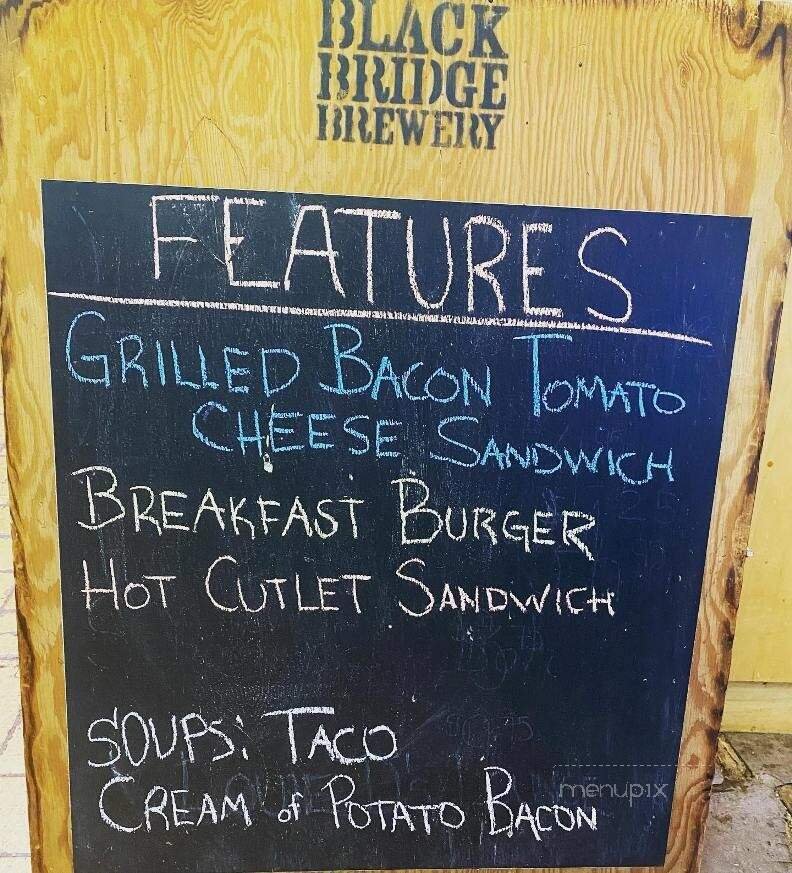 BLACK
BRIDGE
BREWERY
FEATURES
GRILLED BACON TOMATO
CHEESE SANDWICH
BREAKFAST BURGER
HOT CUTLET SANDWICH
SOUPS: TACO
CREAM of POTATO BACON
menupix